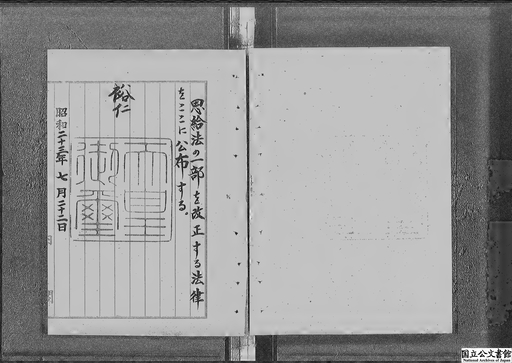 恩給法の一部を改正する法律
をここに公布する。
裕仁
天皇
御璽
昭和二十三年七月二十二日
国立公文書館
National Archives of Japan